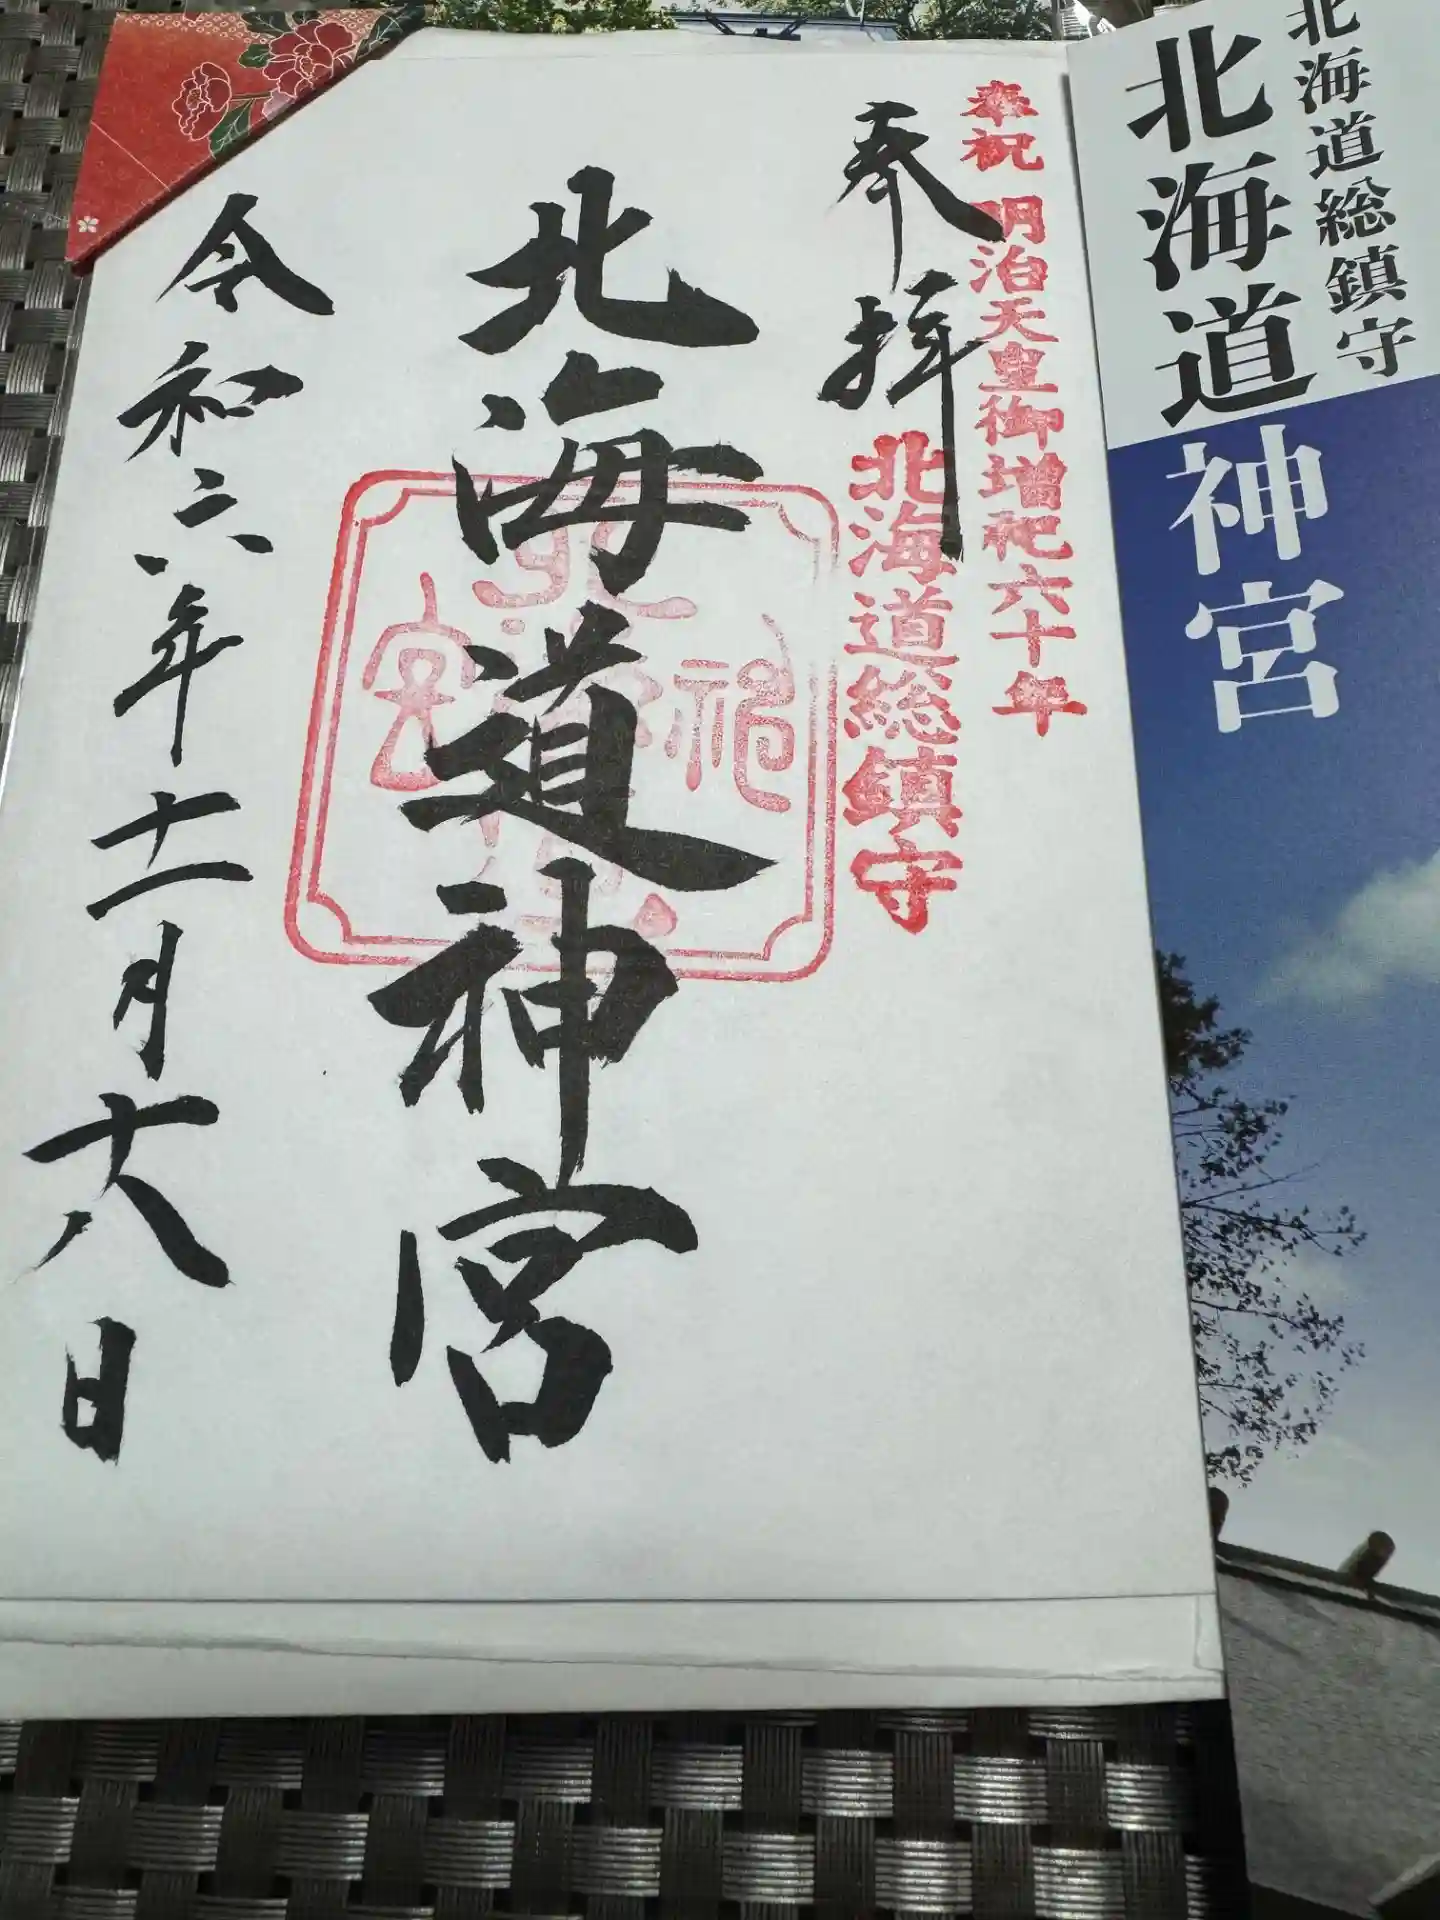 北海道総鎮守
北海道神宮
奉祝 明治天皇御増祀六十年
奉拝
北海道総鎮守
北海道神宮
令和六年十一月十八日